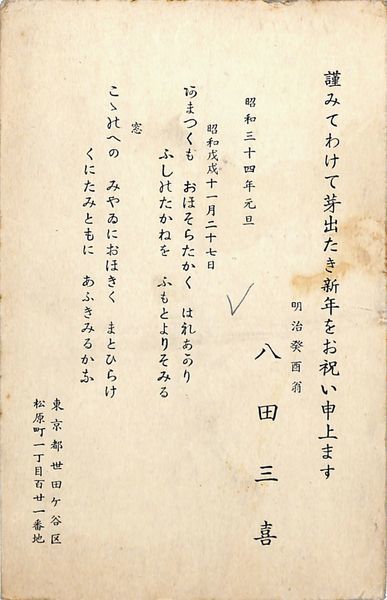 謹みてわけて芽出たき新年をお祝い申上ます
明治癸酉翁
八田三喜
昭和三十四年元旦
昭和戊戌十一月二十七日
あまつくも おほそらたかく はれあがり
ふしのたかねを ふもとよりそみる
窓
こゝのへの みやゐにおほきく まとひらけ
くにたみともに あふきみるかな
東京都世田ケ谷区
松原町一丁目百廿一番地